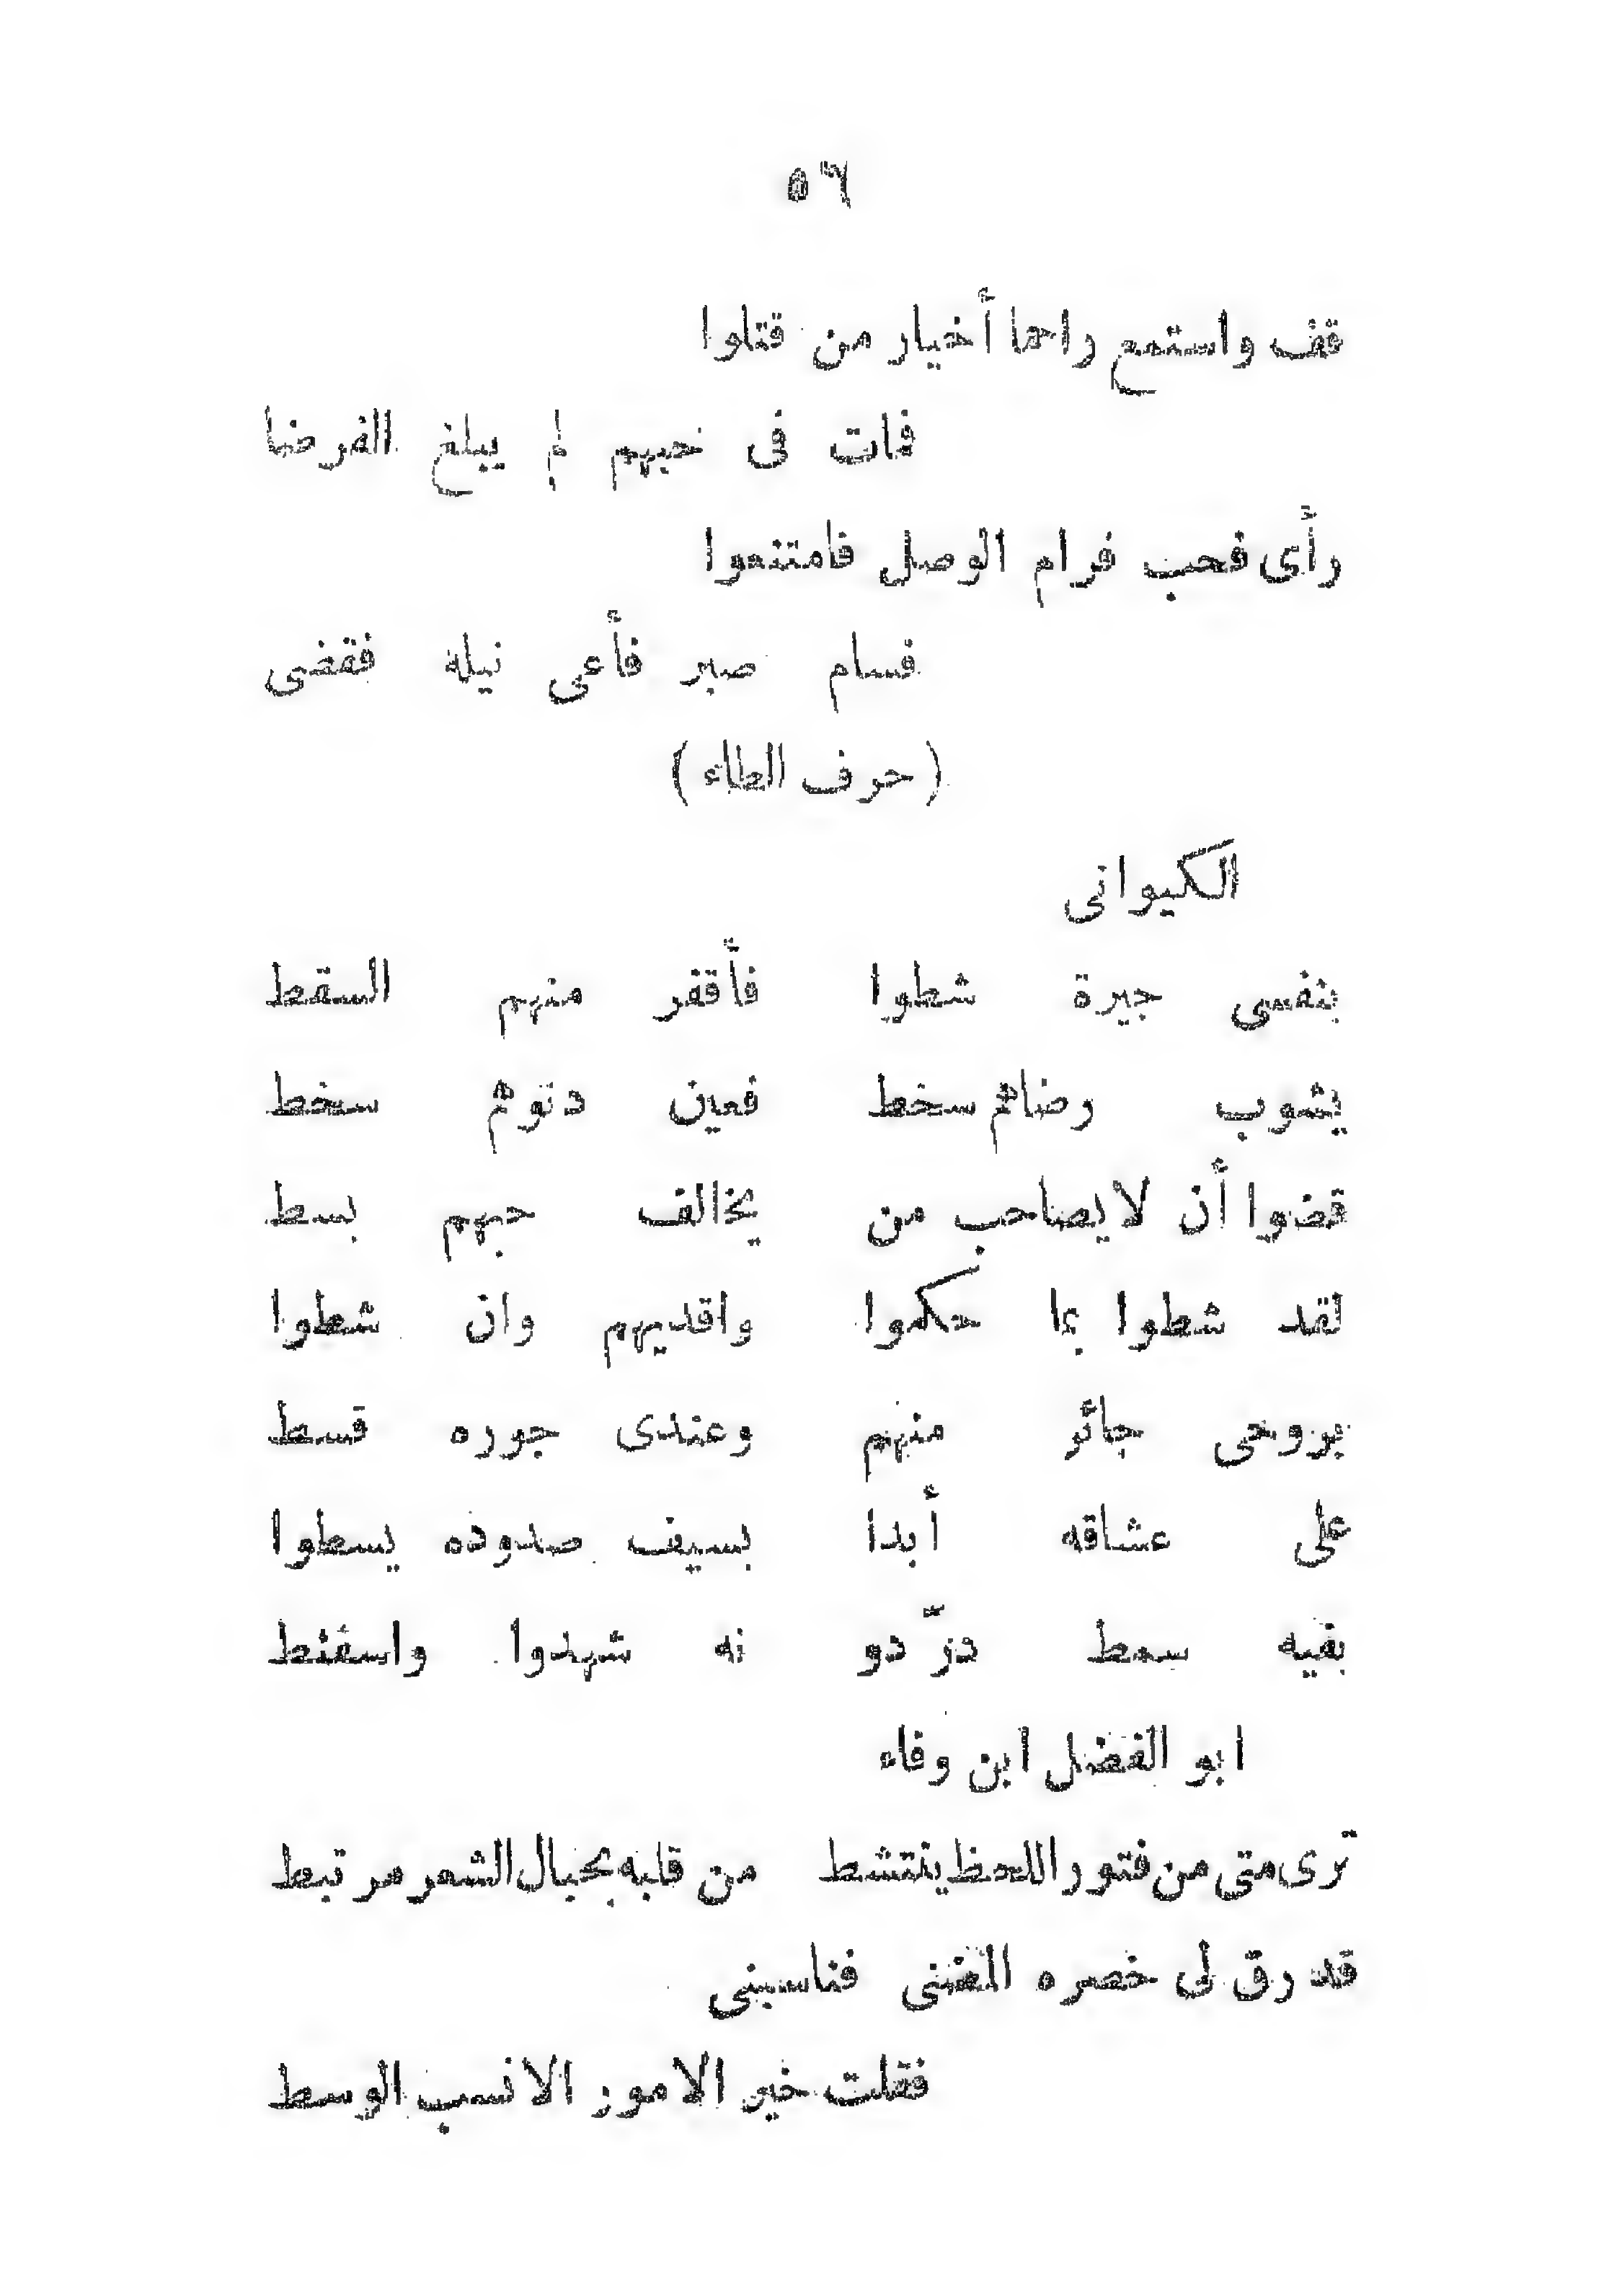 ٥٦
قف واستمع راحما أخبار من قتلوا
فات فى حبهم لم يبلغ الغرضا
رأى فحب فرام الوصل فامتنعوا
فسام صبر فأعى نيله فقضى
(حرف الطاء)
الكيوانى
بنفسى جيرة شطوا فأقفر منهم السقط
يشوب رضاهم سخط فعين دنوهم سخط
قضوا أن لايصاحب من يخالف حبهم بسط
لقد شطوا بما حكموا وافديهم وان شطوا
بروحى جائر منهم وعندى جوره قسط
على عشاقه أبدا بسيف صدوده يسطوا
بفيه سمط درّ دو نه شهدوا واسفنط
ابو الفضل ابن وفاء
ترى متى من فتور اللحظ ينتشط من قلبه بحبال الشعر مرتبط
قد رق لى خصره المضنى فناسبنى
فقلت خير الامور الانسب الوسط